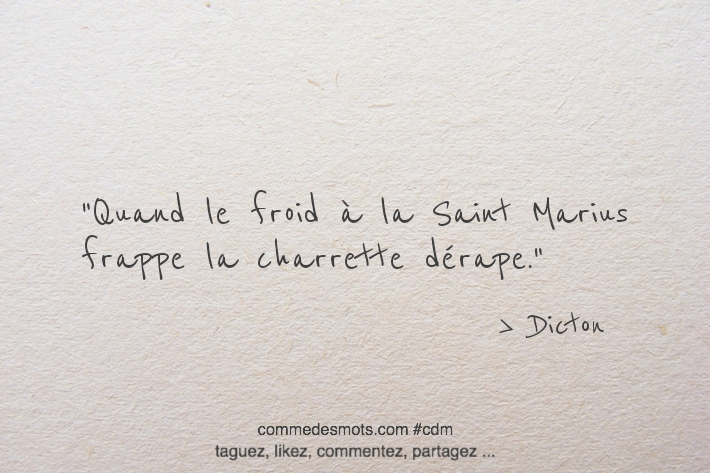 "Quand le froid à la Saint Marius
frappe la charrette dérape."
> Dicton
commedesmots.com #cdm
taguez, likez, commentez, partagez ...